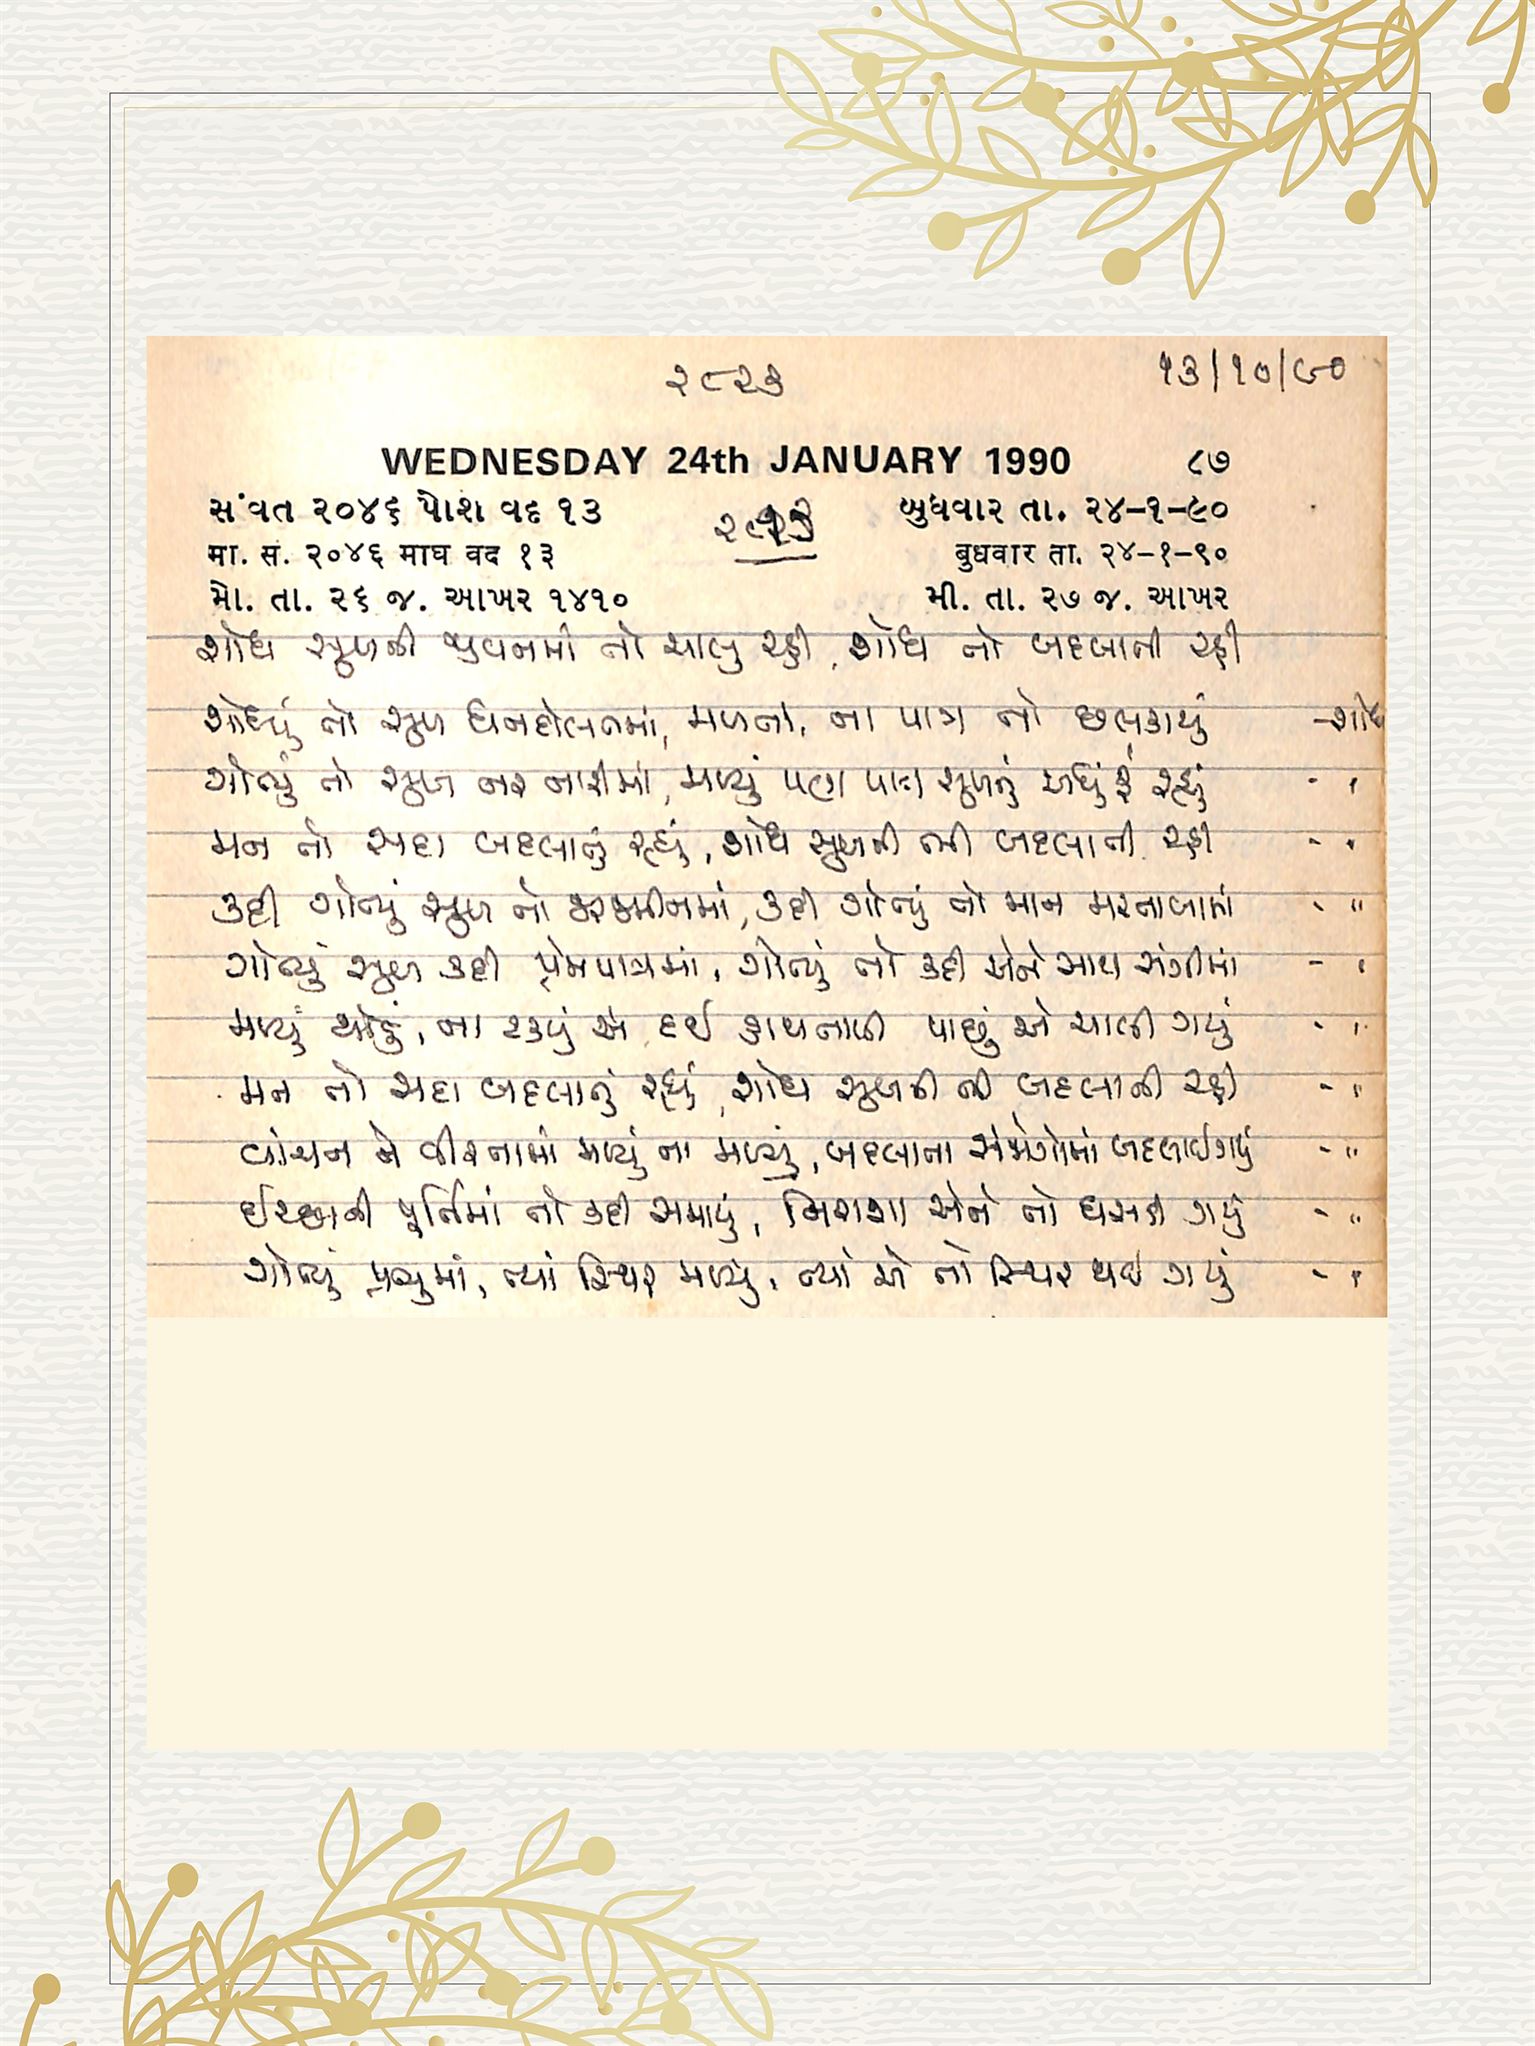 ૨૮૨૩
૧૩/૧૦/૯૦
WEDNESDAY 24th JANUARY 1990 ૮૭
સંવત ૨૦૪૬ પોશ વદ ૧૩
બુધવાર તા. ૨૪-૧-૯૦
मा. सं. २०४६ माघ वद १३
बुधवार ता. २४-१-९०
મો. તા. ૨૬ જ. આખર ૧૪૧૦
મી. તા. ૨૭ જ. આખર
શોધ સુખની જીવનમાં તો ચાલુ રહી, શોધ તો બદલાતી રહી
શોધ્યું તો સુખ ધનદોલતમાં, મળતાં, ના પાત્ર તો છલકાયું - શોધ
ગોત્યું તો સુખ નર નારીમાં, મળ્યું પણ પાત્ર સુખનું અધૂરું રહ્યું - "
મન તો સદા બદલાતું રહ્યું, શોધ સુખની તો બદલાતી રહી - "
કદી ગોત્યું સુખ તો જરજમીનમાં, કદી ગોત્યું તો માન મરતાબામાં - "
ગોત્યું સુખ કદી પ્રેમપાત્રમાં, ગોત્યું તો કદી એને સાથ સંગીમાં - "
મળ્યું થોડું, ના ટક્યું એ દઈ હાથતાળી પાછું એ ચાલી ગયું - "
મન તો સદા બદલાતું રહ્યું, શોધ સુખની તો બદલાતી રહી - "
વાંચન ને વીરતામાં મળ્યું ના મળ્યું, બદલાતા સંજોગોમાં બદલાઈ ગયું - "
ઈચ્છાની પૂર્તિમાં તો કદી સમાયું, નિરાશા એને તો ઘસડી ગયું - "
ગોત્યું પ્રભુમાં, ત્યાં સ્થિર મળ્યું, ત્યાં એ તો સ્થિર થઈ ગયું - "